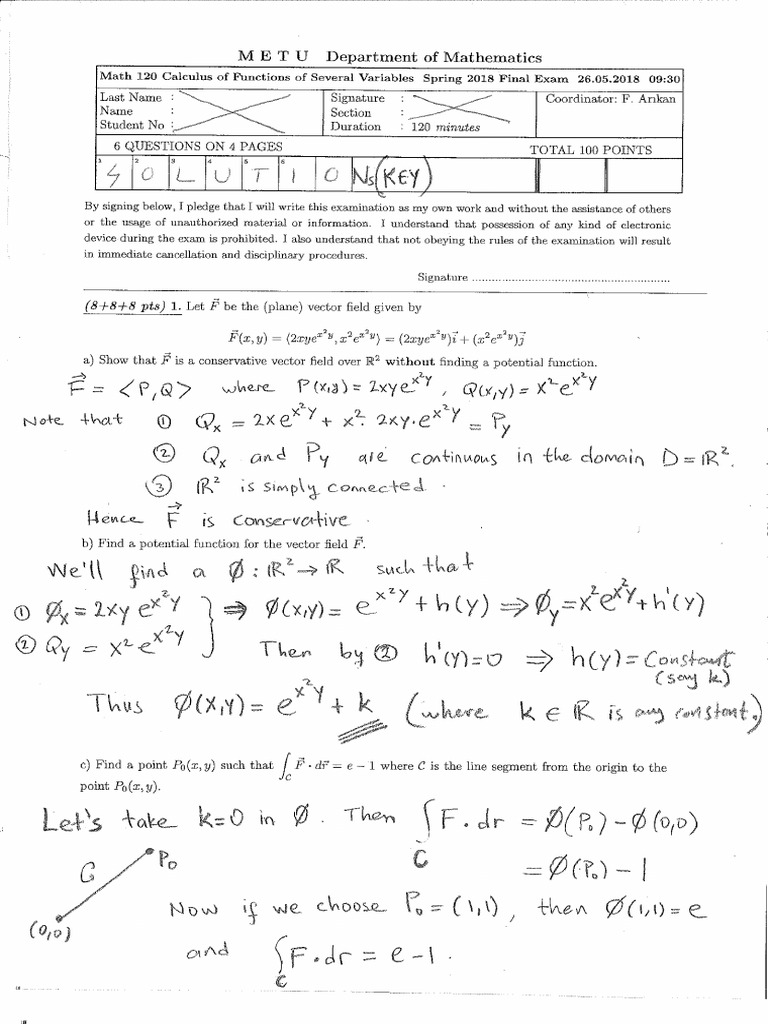 M E T U Department of Mathematics
Math 120 Calculus of Functions of Several Variables Spring 2018 Final Exam 26.05.2018 09:30
Last Name :
Name :
Student No :
Signature :
Section :
Duration : 120 minutes
Coordinator: F. Arıkan
6 QUESTIONS ON 4 PAGES
TOTAL 100 POINTS
1 2 3 4 5 6
S O L U T I O Ns (KEY)
By signing below, I pledge that I will write this examination as my own work and without the assistance of others
or the usage of unauthorized material or information. I understand that possession of any kind of electronic
device during the exam is prohibited. I also understand that not obeying the rules of the examination will result
in immediate cancellation and disciplinary procedures.
Signature ............................................................
(8+8+8 pts) 1. Let F⃗ be the (plane) vector field given by
F⃗(x, y) = ⟨2xye^{x²y}, x²e^{x²y}⟩ = (2xye^{x²y})i⃗ + (x²e^{x²y})j⃗
a) Show that F⃗ is a conservative vector field over ℝ² without finding a potential function.
F⃗ = <P,Q> where P(x,y) = 2xye^{x²y}, Q(x,y) = x²e^{x²y}
Note that ① Qx = 2xe^{x²y} + x². 2xy.e^{x²y} = Py
② Qx and Py are continuous in the domain D = ℝ².
③ ℝ² is simply connected.
Hence F⃗ is conservative.
b) Find a potential function for the vector field F⃗.
We'll find a Ø : ℝ² → ℝ such that
① Øx = 2xy e^{x²y} } ⇒ Ø(x,y) = e^{x²y} + h(y) ⇒ Øy = x²e^{x²y} + h'(y)
② Qy = x² e^{x²y} Then by ② h'(y)=0 ⇒ h(y) = Constant
(say k)
Thus Ø(x,y) = e^{x²y} + k (where k ∈ ℝ is any constant.)
c) Find a point P₀(x, y) such that ∫_C F⃗ · dr⃗ = e − 1 where C is the line segment from the origin to the
point P₀(x, y).
Let's take k=0 in Ø. Then ∫_C F.dr = Ø(P₀) − Ø(0,0)
= Ø(P₀) − 1
C P₀
(0,0)
Now if we choose P₀ = (1,1), then Ø(1,1) = e
and ∫_C F.dr = e−1.